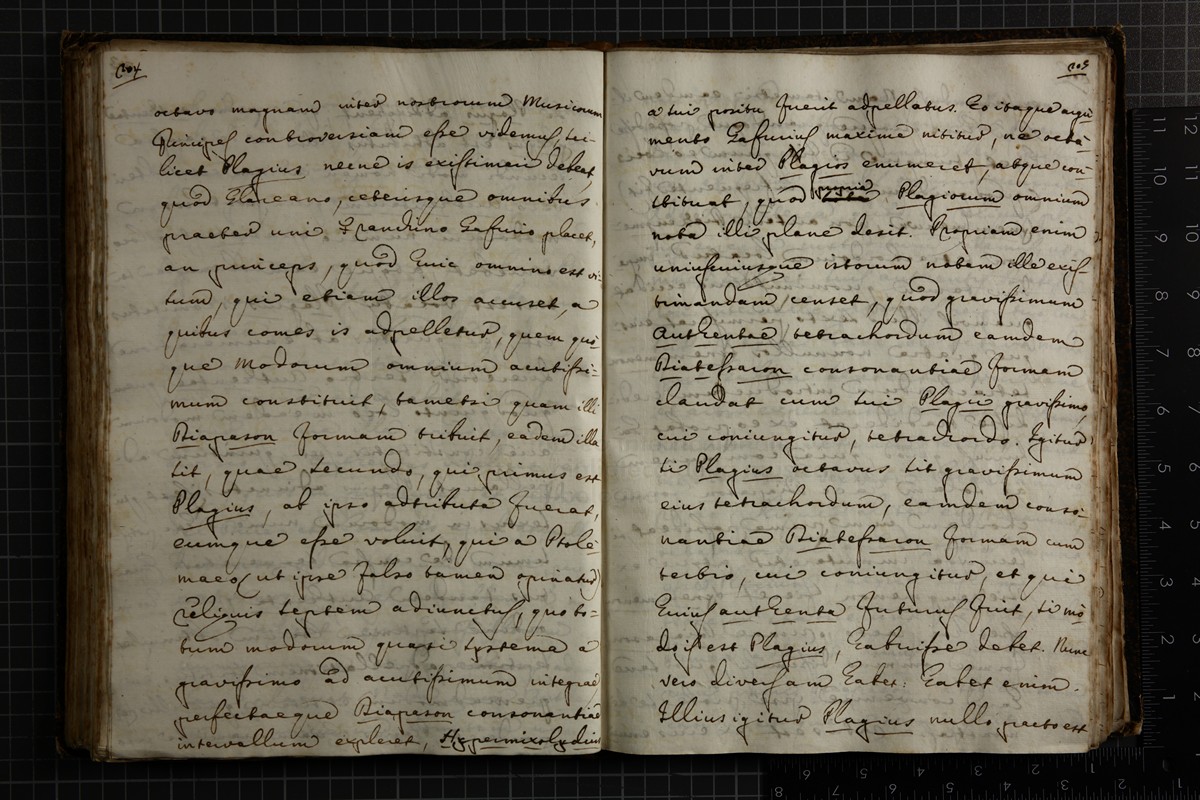 204
octavo magnam inter nostrorum Musicorum
Principes controversiam esse videmus, sci-
licet Plagius necne is existimari debeat,
quod Glareano, ceterisque omnibus
praeter uni Franchino Gafurio placet,
an princeps, quod huic omnino est vi-
sum, qui etiam illos accuset, a
quibus comes is adpelletur, quem quo-
que modorum omnium acutissi-
mum constituit, tametsi quam illi
Diapason formam tribuit, eadem illa
sit, quae secundo, qui primus est
Plagius, ab ipso adtributa fuerat,
eumque esse voluit, qui a Ptole-
maeo (ut ipse falso tamen opinatur)
reliquis septem adiunctus, quo to-
tum modorum quasi systema a
gravissimo ad acutissimum integrae
perfectaeque Diapason consonantiae
intervallum expleret, Hypermixolydius
205
a sui positu fuerit adpellatus. Eo itaque argu
mento Gafurius maxime nititur, ne octa-
vum inter Plagios enumeret, atque con-
tribuat, quod propria Plagiorum omnium
nota illi plane desit. Propriam enim
uniuscuiusque istorum notam ille exis-
timandam censet, quod gravissimum
Authentae tetrachordum eamdem
Diatessaron consonantiae formam
claudat cum sui Plagii gravissimo,
cui coniungitur, tetrachordo. Igitur
si Plagius octavus sit gravissimum
eius tetrachordum, eamdem conso-
nantiae Diatessaron formam cum
tertio, cui coniungitur, et qui
huius authenta futurus fuit, si mo-
do is est Plagius, habuisse debet. Nunc
vero diversam habet: habet enim.
Illius igitur Plagius nullo pacto est